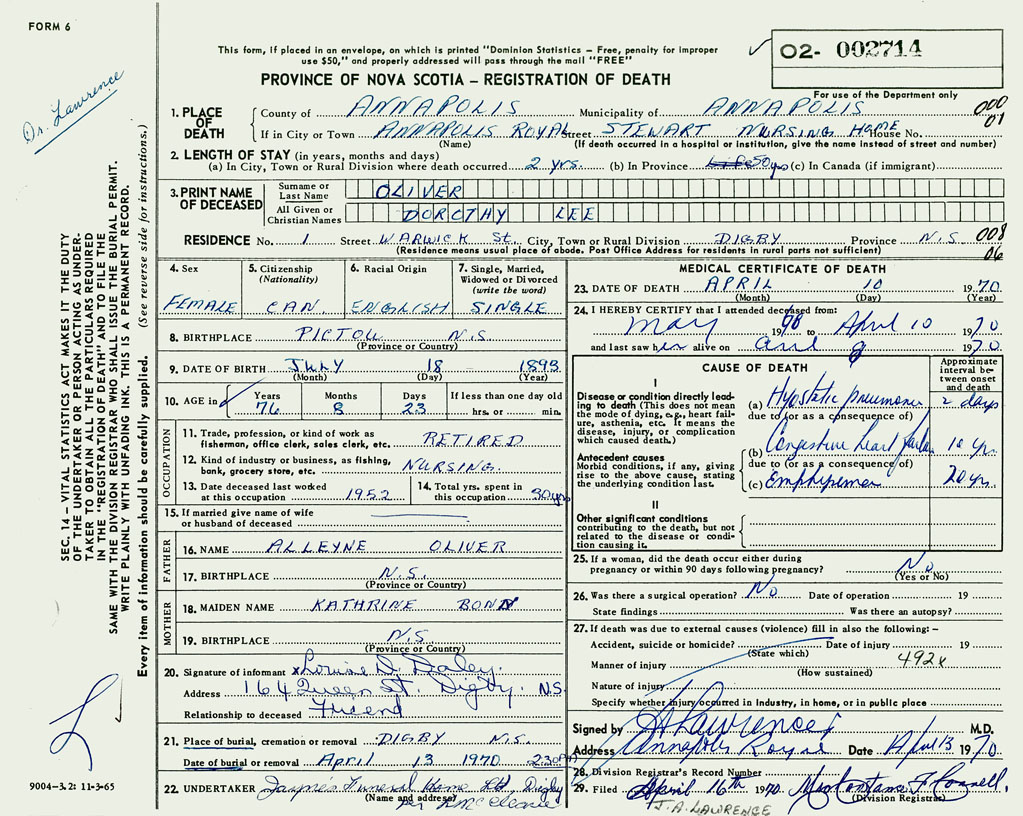 FORM 6
This form, if placed in an envelope, on which is printed "Dominion Statistics – Free, penalty for improper
use $50," and properly addressed will pass through the mail "FREE"
02- 002714
PROVINCE OF NOVA SCOTIA – REGISTRATION OF DEATH
For use of the Department only
Dr. Lawrence
1. PLACE OF DEATH
County of ANNAPOLIS Municipality of ANNAPOLIS 000
If in City or Town ANNAPOLIS ROYAL Street STEWART NURSING HOME House No. 01
(Name) (If death occurred in a hospital or institution, give the name instead of street and number)
2. LENGTH OF STAY (in years, months and days)
(a) In City, Town or Rural Division where death occurred 2 yrs. (b) In Province 50 yrs (c) In Canada (if immigrant)
3. PRINT NAME OF DECEASED
Surname or Last Name OLIVER
All Given or Christian Names DOROTHY LEE
RESIDENCE No. 1 Street WARWICK St. City, Town or Rural Division DIGBY Province N.S. 008
(Residence means usual place of abode. Post Office Address for residents in rural parts not sufficient) 06
4. Sex FEMALE
5. Citizenship (Nationality) CAN.
6. Racial Origin ENGLISH
7. Single, Married, Widowed or Divorced (write the word) SINGLE
8. BIRTHPLACE PICTOU N.S.
(Province or Country)
9. DATE OF BIRTH JULY 18 1893
(Month) (Day) (Year)
10. AGE in Years 76 Months 8 Days 23 If less than one day old
hrs. or min.
OCCUPATION
11. Trade, profession, or kind of work as
fisherman, office clerk, sales clerk, etc. RETIRED
12. Kind of industry or business, as fishing,
bank, grocery store, etc. NURSING.
13. Date deceased last worked
at this occupation 1952
14. Total yrs. spent in
this occupation 30 yrs
15. If married give name of wife
or husband of deceased
FATHER
16. NAME ALLEYNE OLIVER
17. BIRTHPLACE N.S.
(Province or Country)
MOTHER
18. MAIDEN NAME KATHRINE BOND
19. BIRTHPLACE N.S.
(Province or Country)
20. Signature of informant x Louise D. Daley.
Address 164 Queen St. Digby. N.S.
Relationship to deceased Friend
21. Place of burial, cremation or removal DIGBY N.S.
Date of burial or removal April 13 1970
22. UNDERTAKER Jayne's Funeral Home Ltd, Digby
(Name and address)
MEDICAL CERTIFICATE OF DEATH
23. DATE OF DEATH APRIL 10 1970
(Month) (Day) (Year)
24. I HEREBY CERTIFY that I attended deceased from:
May 19 to April 10 1970
and last saw her alive on 9 1970
CAUSE OF DEATH
Approximate interval between onset and death
I
Disease or condition directly leading to death (This does not mean the mode of dying, e.g., heart failure, asthenia, etc. It means the disease, injury, or complication which caused death.)
(a) Hypostatic pneumonia 2 days
due to (or as a consequence of)
Antecedent causes
Morbid conditions, if any, giving rise to the above cause, stating the underlying condition last.
(b) Congestive heart failure 10 yrs.
due to (or as a consequence of)
(c) 20 yrs.
II
Other significant conditions
contributing to the death, but not related to the disease or condition causing it.
25. If a woman, did the death occur either during
pregnancy or within 90 days following pregnancy? No
(Yes or No)
26. Was there a surgical operation? No Date of operation 19
State findings Was there an autopsy?
27. If death was due to external causes (violence) fill in also the following: –
Accident, suicide or homicide? Date of injury 19
(State which) 492x
Manner of injury
(How sustained)
Nature of injury
Specify whether injury occurred in industry, in home, or in public place
Signed by Lawrence M.D.
Address Annapolis Royal Date April 13 1970
28. Division Registrar's Record Number
29. Filed April 16th 1970
(Division Registrar)
J.A. LAWRENCE
SEC. 14 – VITAL STATISTICS ACT MAKES IT THE DUTY
OF THE UNDERTAKER OR PERSON ACTING AS UNDER-
TAKER TO OBTAIN ALL THE PARTICULARS REQUIRED
IN THE "REGISTRATION OF DEATH" AND TO FILE THE
SAME WITH THE DIVISION REGISTRAR WHO SHALL ISSUE THE BURIAL PERMIT.
WRITE PLAINLY WITH UNFADING INK. THIS IS A PERMANENT RECORD.
Every item of information should be carefully supplied. (See reverse side for instructions.)
9004–3.2: 11-3-65